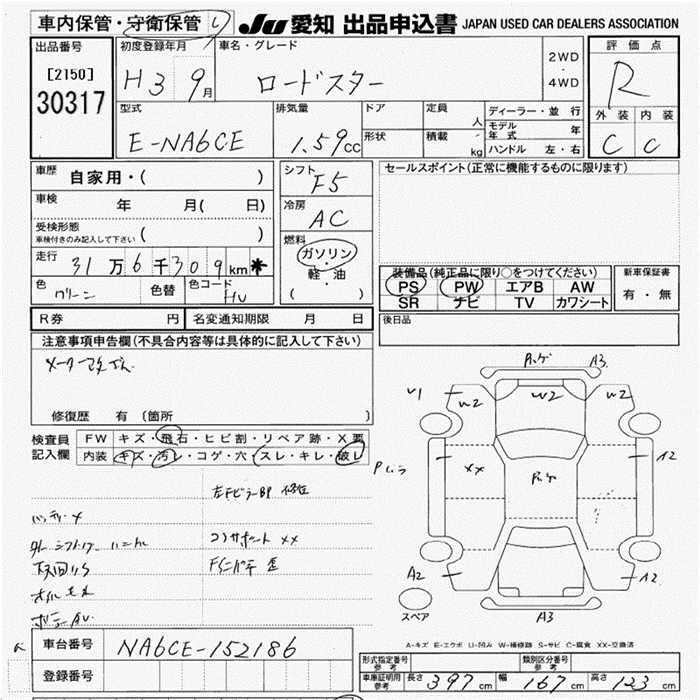 車内保管・守衛保管 し JU 愛知 出品申込書 JAPAN USED CAR DEALERS ASSOCIATION
出品番号 初度登録年月 車名・グレード 評価点
[2150] H3 9月 ロードスター 2WD・4WD R
30317
型式 排気量 ドア 定員 人 ディーラー・並行 外装 内装
E-NA6CE 1.59cc 形状 積載 kg モデル年式 年 C C
ハンドル 左・右
車歴 自家用・( ) シフト F5 セールスポイント(正常に機能するものに限ります)
車検 年 月( 日) 冷房 AC
受検形態 車検付きのみ記入して下さい ( )
燃料 ガソリン・軽油 ( )
走行 31万6千309km *
装備品(純正品に限り○をつけてください) 新車保証書
PS PW エアB AW 有・無
SR ナビ TV カワシート
色 グリーン 色替 色コード HU
R券 円 名変通知期限 月 日 後日品
注意事項申告欄(不具合内容等は具体的に記入して下さい)
修復歴 有 (箇所 )
検査員記入欄 FW キズ・飛石・ヒビ割・リペア跡・X要
内装 キズ・汚レ・コゲ・穴・スレ・キレ・破レ
A3
W1 W2 W2 W2
XX A2
コアサポート XX
A2 A2
スペア A3
A-キズ E-エクボ U-凹み W-補修跡 S-サビ C-腐食 XX-交換済
車台番号 NA6CE-152186
登録番号
形式指定番号 参考 類別区分番号 参考
車庫証明用 参考 長さ 397cm 幅 167cm 高さ 123cm